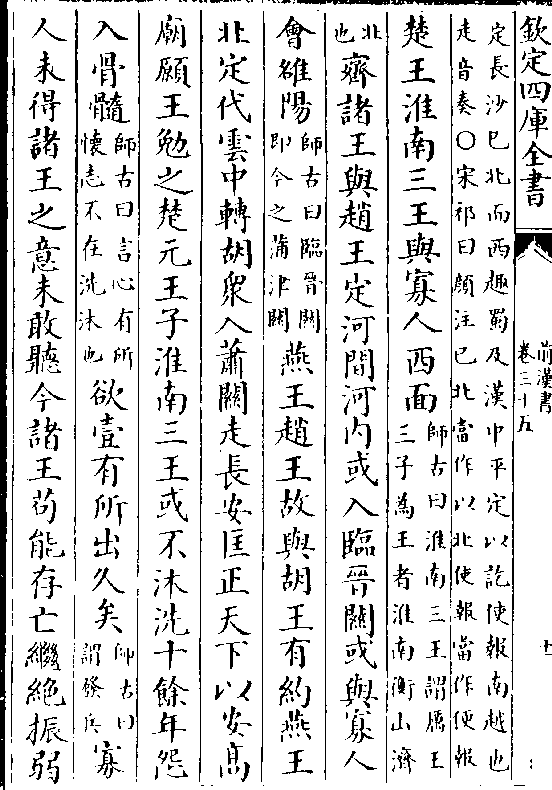 欽定四庫全書
前漢書
卷三十五
十
定長沙已北而西趣蜀及漢中平定以訖使報南越也
走音奏○宋祁曰顔注已北當作以北使報當作便報
楚王淮南三王與寡人西面
師古曰淮南三王謂厲王
三子為王者淮南衡山濟
北
也
齊諸王與趙王定河間河内或入臨晉關或與寡人
會雒陽
師古曰臨晉關
即今之蒲津關
燕王趙王故與胡王有約燕王
北定代雲中轉胡衆入蕭關走長安匡正天下以安高
廟願王勉之楚元王子淮南三王或不沐洗十餘年怨
入骨髓
師古曰言心有所
懷志不在洗沐也
欲壹有所出久矣
師古曰
謂發兵
寡
人未得諸王之意未敢聽今諸王苟能存亡繼絶振弱